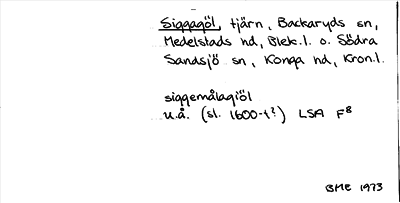 Siggagöl, tjärn, Backaryds sn,
Medelstads hd, Blek.l. o. Södra
Sandsjö sn, Konga hd, Kron.l.
siggemålagiöl
u.å. (sl. 1600-t?) LSA F8
BME 1973